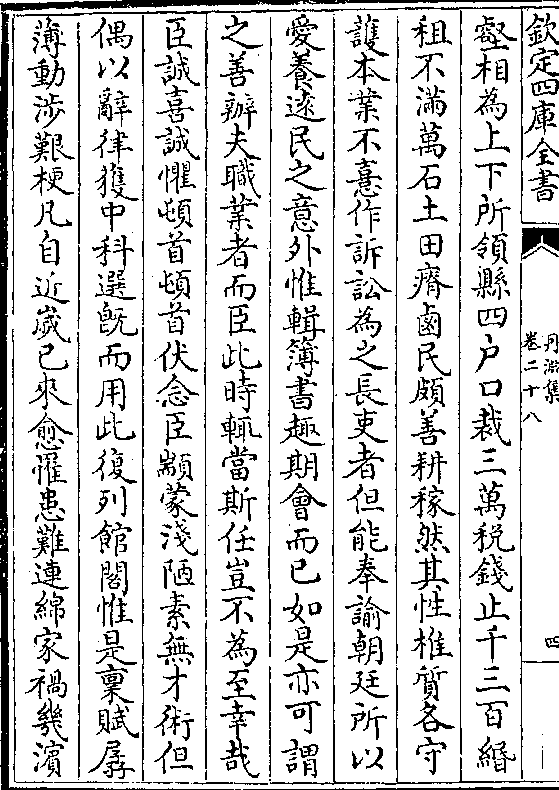 欽定四庫全書
丹淵集
卷二十八
四
壑相為上下所領縣四户口裁三萬税錢止千三百緡
租不滿萬石土田瘠鹵民頗善耕稼然其性椎質各守
䕶本業不憙作訴訟為之長吏者但能奉諭朝廷所以
愛養逺民之意外惟輯簿書趣期會而已如是亦可謂
之善辦夫職業者而臣此時輒當斯任豈不為至幸哉
臣誠喜誠懼頓首頓首伏念臣顓蒙淺陋素無才術但
偶以辭律獲中科選旣而用此復列館閣惟是稟賦孱
薄動涉艱梗凡自近嵗已來愈罹患難連綿家禍㡬濵